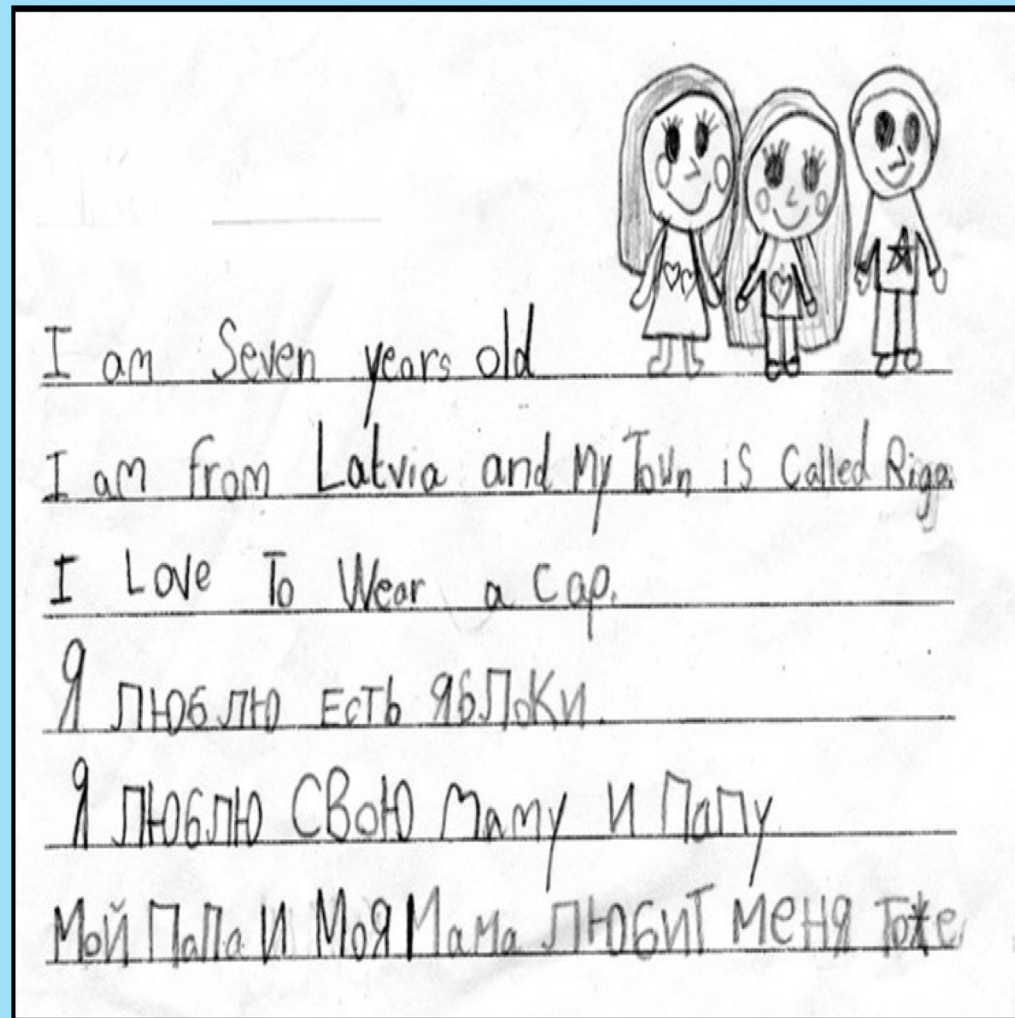 I am Seven years old
I am from Latvia and My Town is Called Riga.
I Love To Wear a Cap.
Я люблю есть яблоки.
Я люблю свою маму и папу
Мой Папа и Моя Мама любит меня тоже